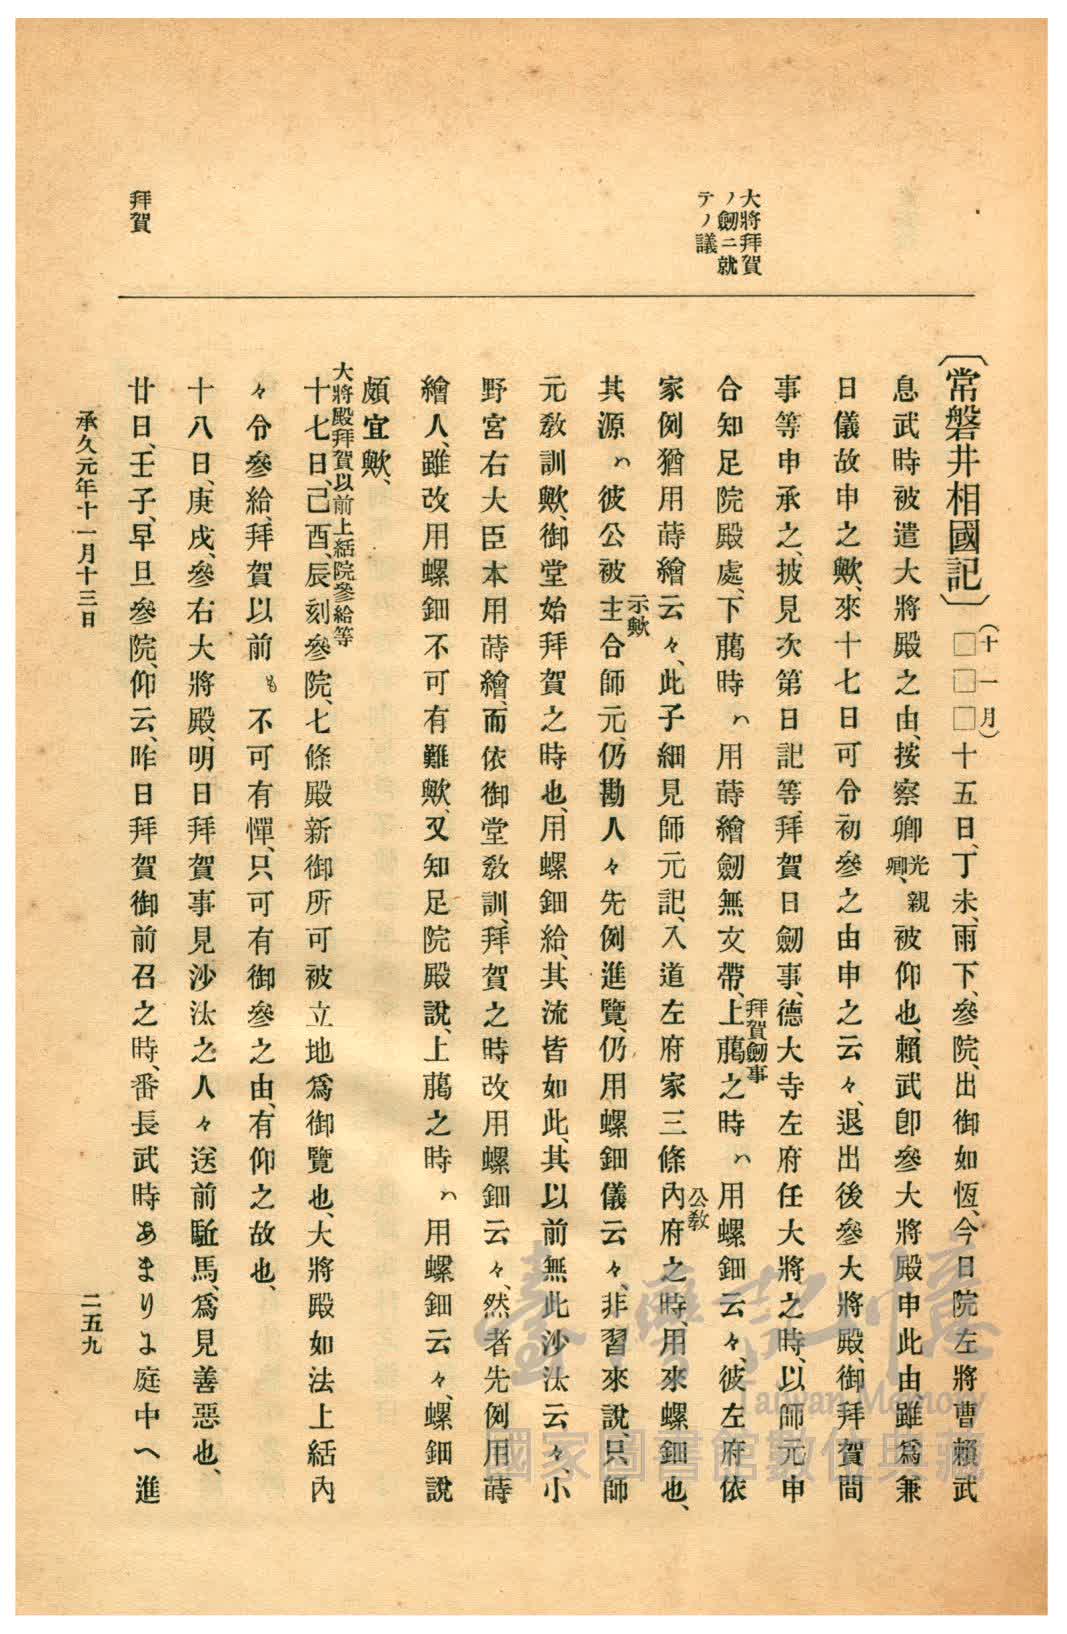 大將拜賀
ノ劒ニ就
テノ議
拜賀
〔常磐井相國記〕
(十一月)
□□□十五日、丁未、雨下、參院、出御如恆、今日院左將曹賴武
息武時被遣大將殿之由、按察卿光親卿、被仰也、賴武卽參大將殿申此由雖爲兼
日儀故申之歟、來十七日可令初參之由申之云々、退出後參大將殿、御拜賀間
事等申承之、披見次第日記等、拜賀日劒事、德大寺左府任大將之時、以師元申
拜賀劒事
合知足院殿處、下﨟時ハ用蒔繪劒無文帶、上﨟之時ハ用螺鈿云々、彼左府依
家例猶用蒔繪云々、此子細見師元記、入道左府家三條內府之時、用來螺鈿也、
公敎
示歟
其源ハ彼公被主合師元、仍勘人々先例進覽、仍用螺鈿儀云々、非習來說、只師
元敎訓歟、御堂始拜賀之時也、用螺鈿給、其流皆如此、其以前無此沙汰云々、小
野宮右大臣本用蒔繪、而依御堂敎訓、拜賀之時改用螺鈿云々、然者先例用蒔
繪人、雖改用螺鈿不可有難歟、又知足院殿說、上﨟之時ハ用螺鈿云々、螺鈿說
頗宜歟、
大將殿拜賀以前上結院參給等
十七日、己酉、辰刻參院、七條殿新御所可被立地爲御覽也、大將殿如法上結內
々令參給、拜賀以前も不可有憚、只可有御參之由、有仰之故也、
十八日、庚戌、參右大將殿、明日拜賀事見沙汰之人々送前駈馬、爲見善惡也、
廿日、壬子、早旦參院、仰云、昨日拜賀御前召之時、番長武時あまりよ庭中へ進
承久元年十一月十三日
二五九
臺灣記憶
Taiwan Memory
國家圖書館數位典藏